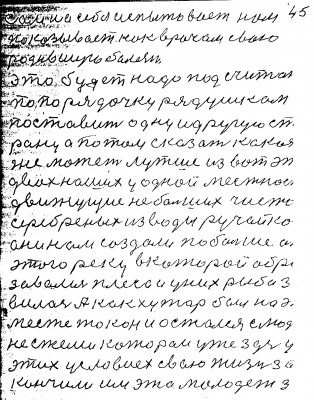 45
себя испытывает нам
показывает как врачам свою
это будет надо подсчитат
по порядочку рядушкам
поставит одну и другую ст
рану а потом сказат какая
же может лутше из вот эт
двоих наших у одной местнос
движущие не болших чисто
серебреных из воды ручайко
они нам создали поболше а
этого реку в которой обра
завалил плеса и у них рыба з
А как хутор был на э
месте то кон и остался с мое
не сжели котором уже здес у
этих условиех сваю жизн за
кончили им эта молодеж з